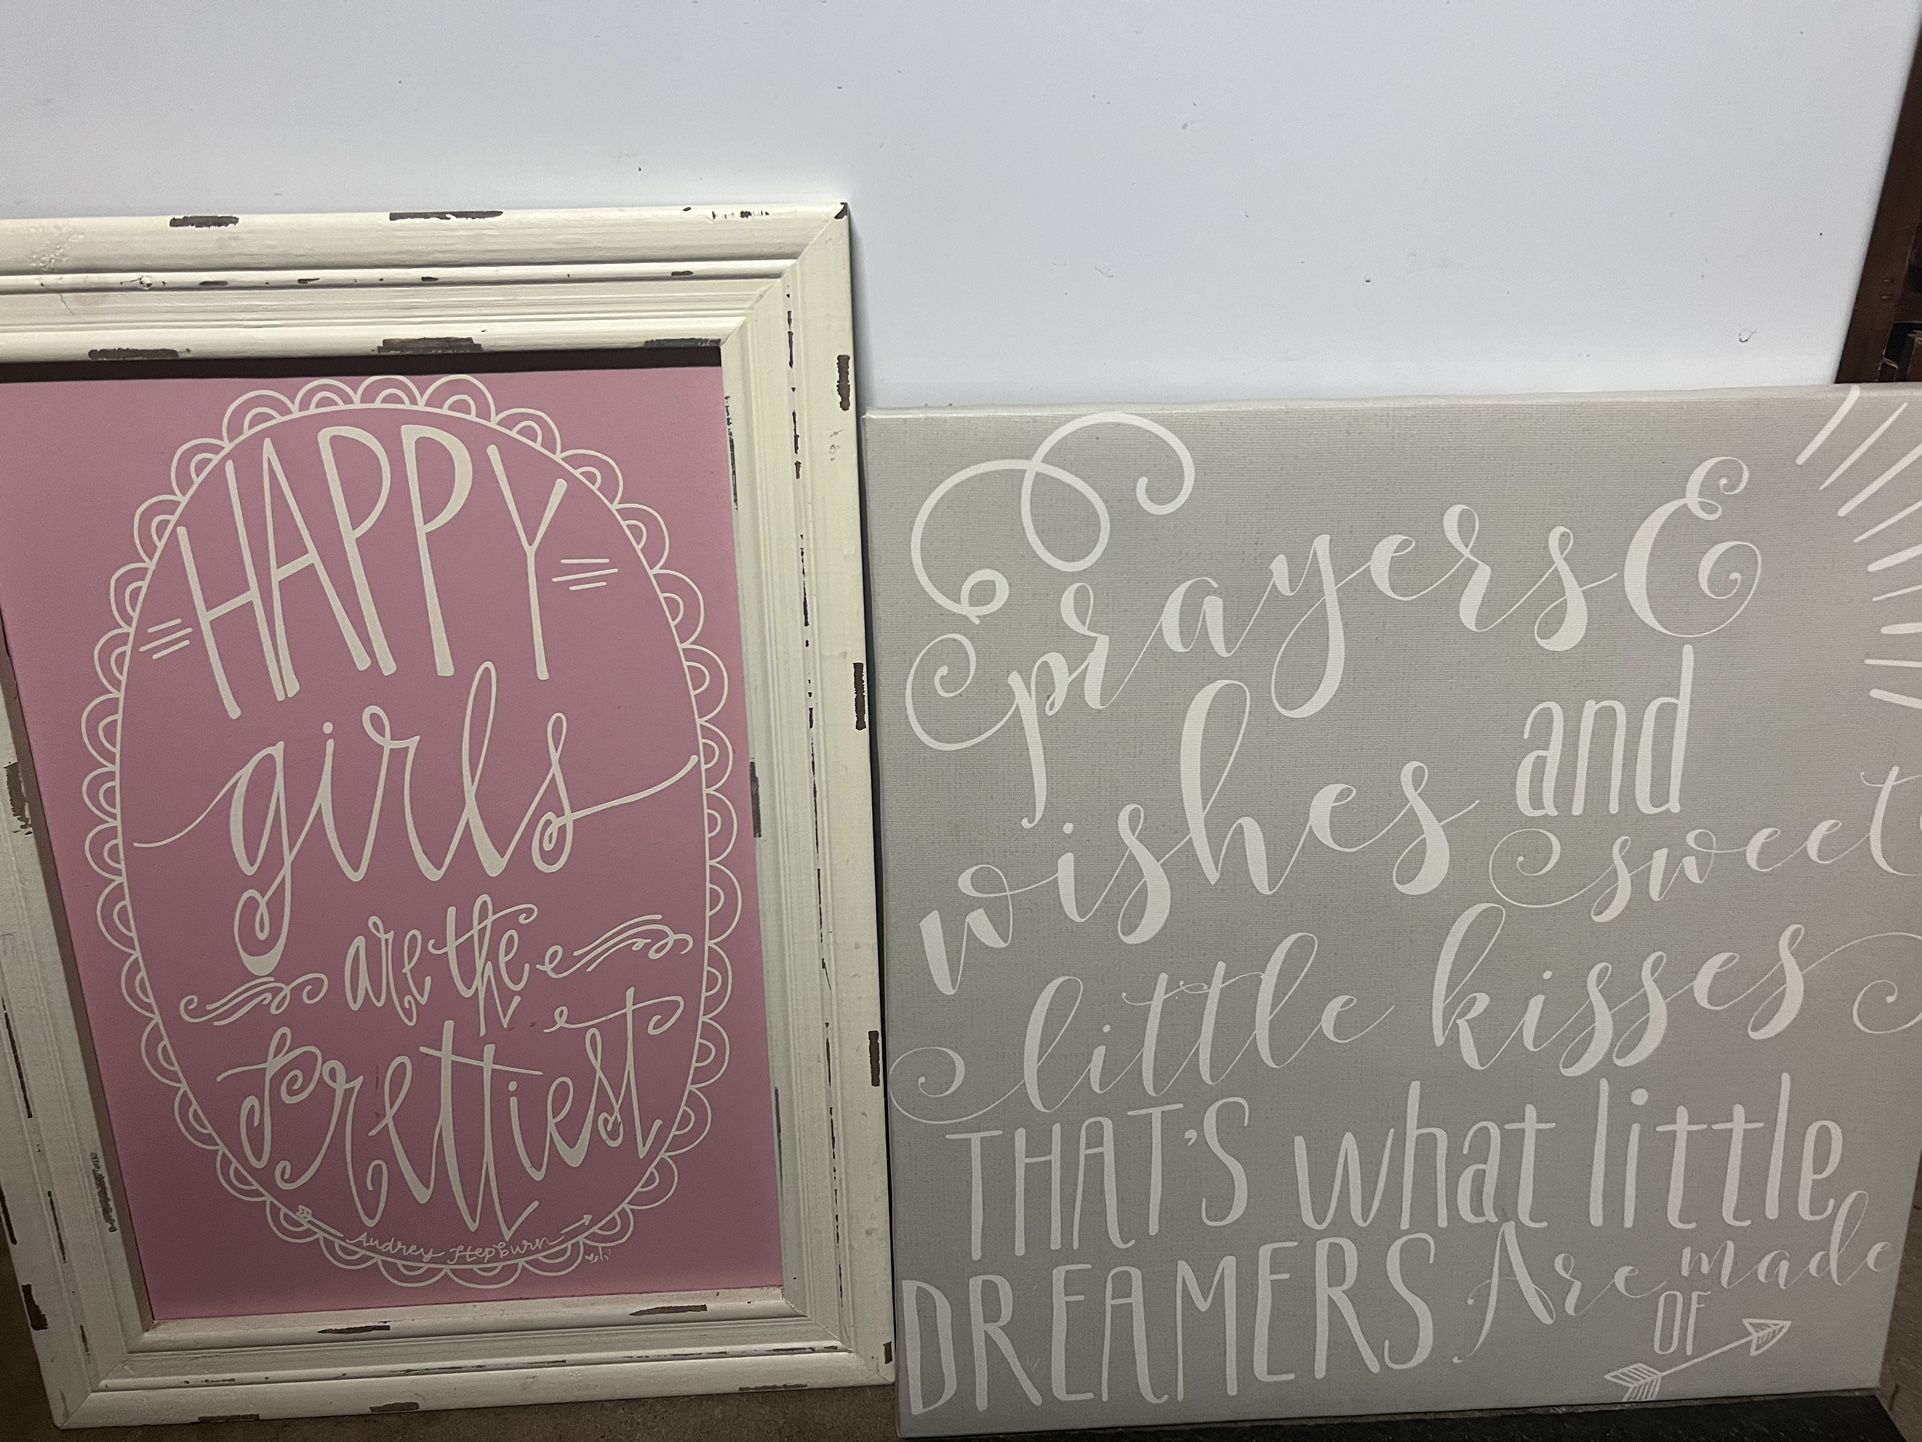 HAPPY
girls
are the
Prettiest
Audrey Hepburn
prayers &
wishes and
sweet
little kisses
THAT'S what little
DREAMERS Are made
OF